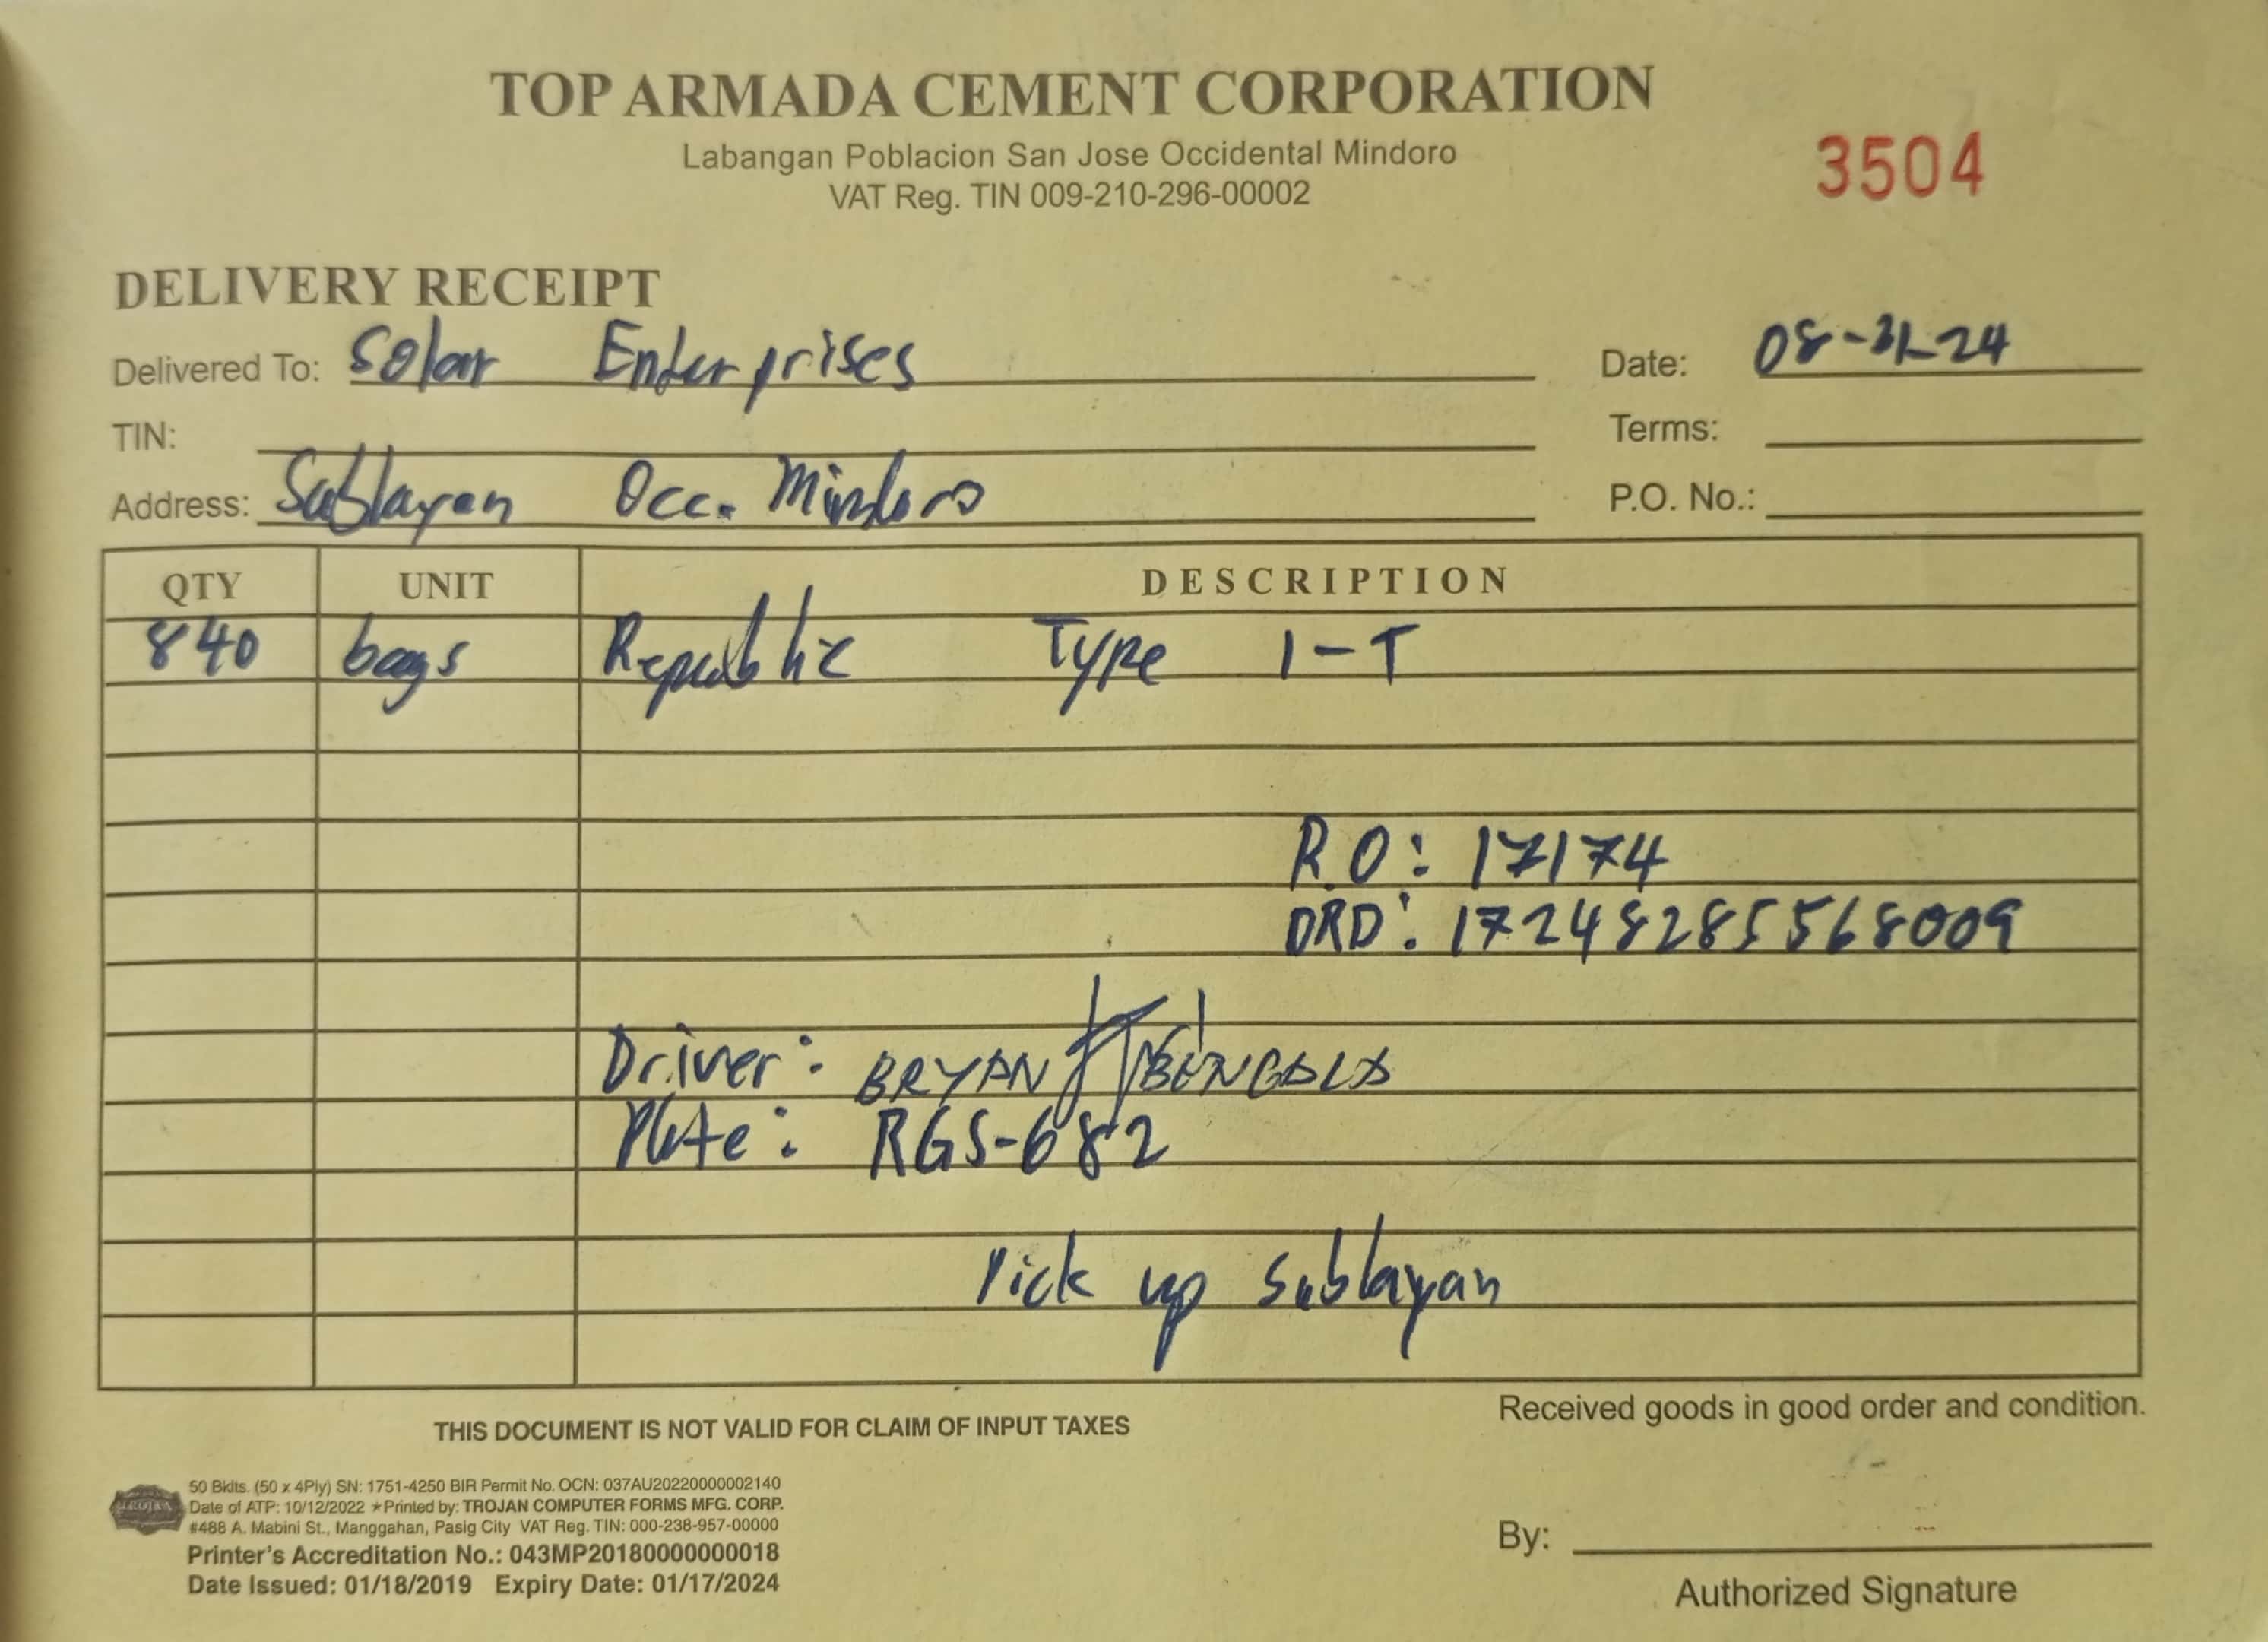 TOP ARMADA CEMENT CORPORATION
Labangan Poblacion San Jose Occidental Mindoro
VAT Reg. TIN 009-210-296-00002
3504
DELIVERY RECEIPT
Delivered To: Solar Enterprises
Date: 08-31-24
TIN:
Terms:
Address: Sablayan Occ. Mindoro
P.O. No.:
QTY UNIT DESCRIPTION
840 bags Republic Type 1-T
R.O: 17174
DRD: 17248285568009
Driver: BRYAN
Plate: RGS-682
Pick up Sablayan
THIS DOCUMENT IS NOT VALID FOR CLAIM OF INPUT TAXES
Received goods in good order and condition.
50 Bklts. (50 x 4Ply) SN: 1751-4250 BIR Permit No. OCN: 037AU20220000002140
Date of ATP: 10/12/2022 ★Printed by: TROJAN COMPUTER FORMS MFG. CORP.
#488 A. Mabini St., Manggahan, Pasig City VAT Reg. TIN: 000-238-957-00000
Printer's Accreditation No.: 043MP20180000000018
Date Issued: 01/18/2019 Expiry Date: 01/17/2024
TROJAN
By:
Authorized Signature